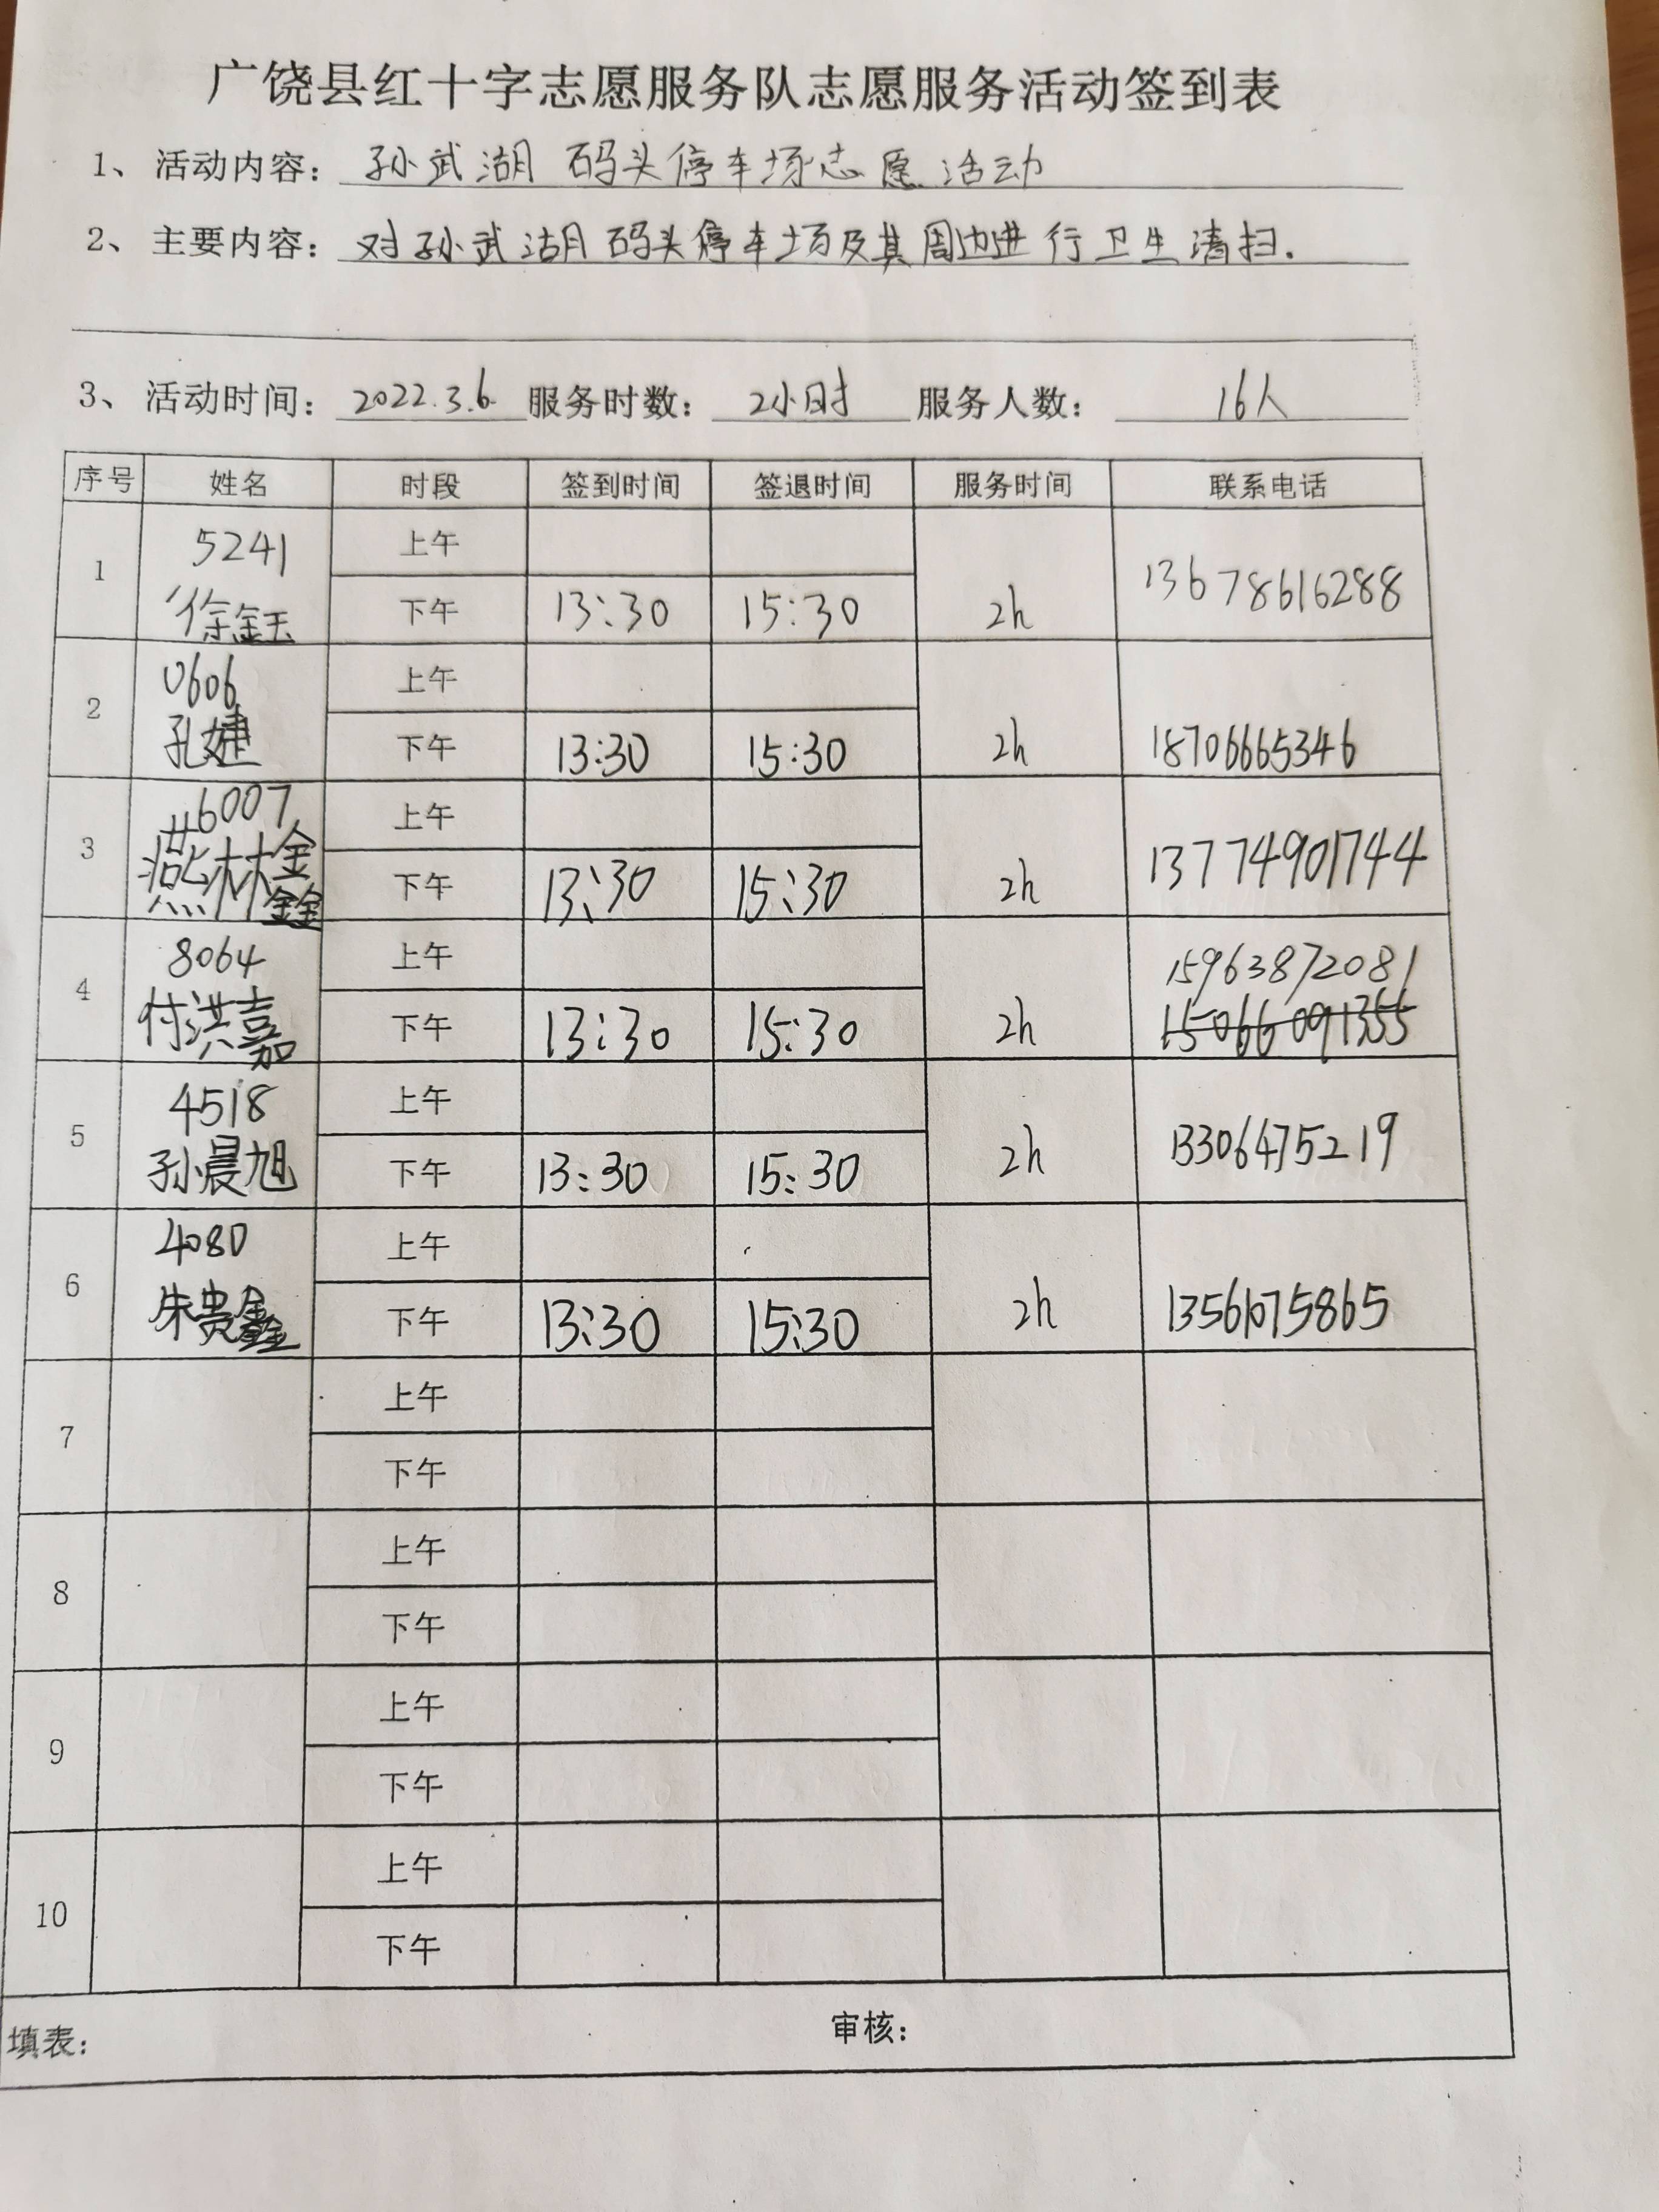 广饶县红十字志愿服务队志愿服务活动签到表
1、活动内容：孙武湖码头停车场志愿活动
2、主要内容：对孙武湖码头停车场及其周边进行卫生清扫.
3、活动时间：2022.3.6 服务时数：2小时 服务人数：16人
序号 姓名 时段 签到时间 签退时间 服务时间 联系电话
1 5241 徐鈺 上午 13678616288
下午 13:30 15:30 2h
2 0606 孔婕 上午
下午 13:30 15:30 2h 18706665346
3 #6007 燕林鑫 上午 13774901744
下午 13:30 15:30 2h
4 8064 付洪嘉 上午 15963872081
下午 13:30 15:30 2h 15066091355
5 4518 孙晨旭 上午 13306475219
下午 13:30 15:30 2h
6 4080 朱贵鑫 上午
下午 13:30 15:30 2h 13561075865
7 上午
下午
8 上午
下午
9 上午
下午
10 上午
下午
填表： 审核：